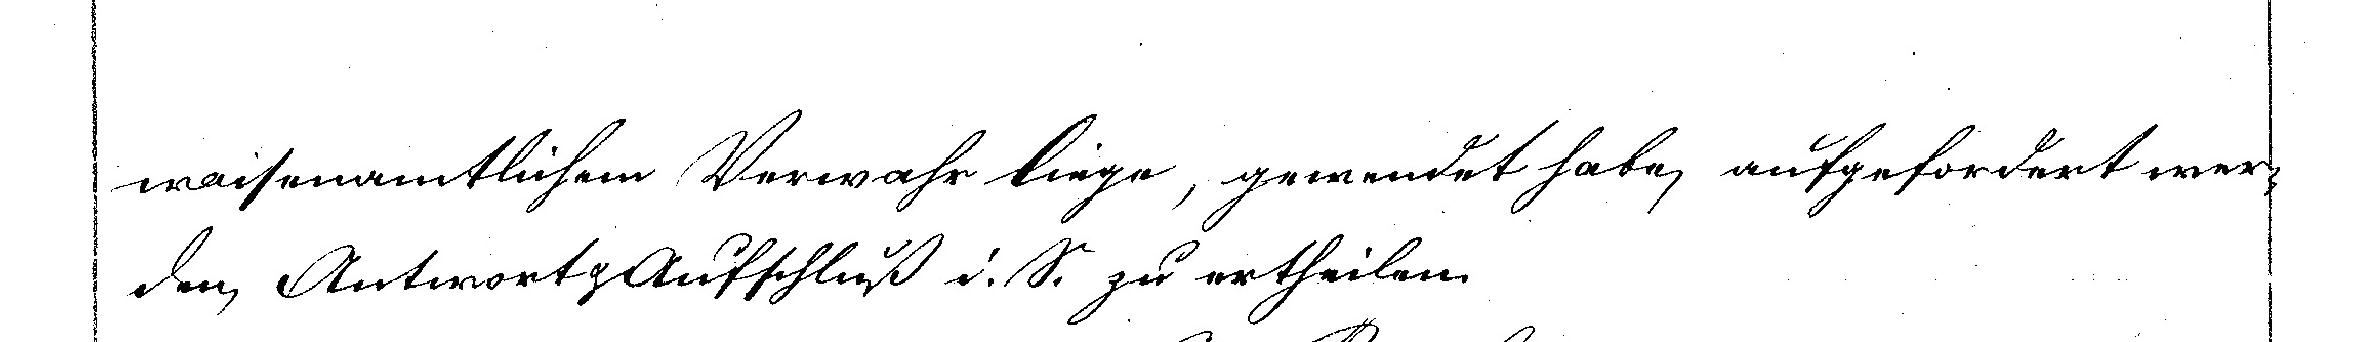 waisenamtlichem Verwahr liege, gewendet habe, aufgefordert wer-
den, Antwort & Aufschluß i. S. zu ertheilen.